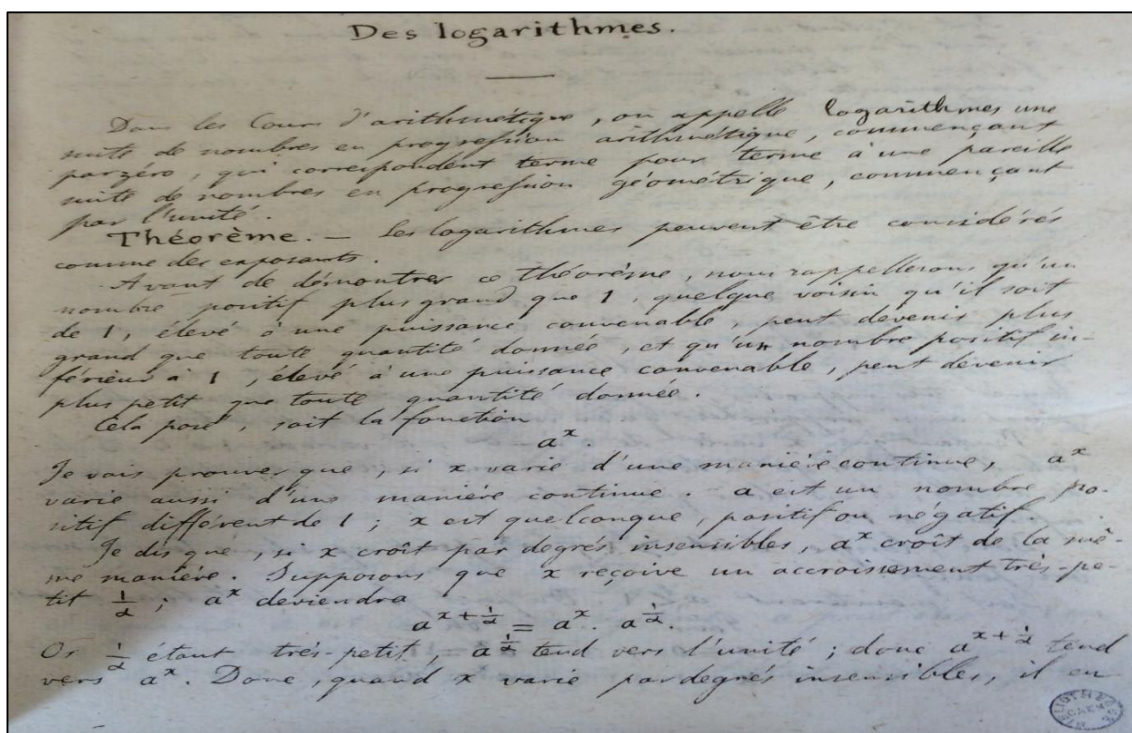 Des logarithmes.
Dans les Cours d'arithmétique, on appelle logarithmes une
suite de nombres en progression arithmétique, commençant
par zéro, qui correspondent terme pour terme à une pareille
suite de nombres en progression géométrique, commençant
par l'unité.
Théorème. — Les logarithmes peuvent être considérés
comme des exposants.
Avant de démontrer ce théorème, nous rappellerons qu'un
nombre positif plus grand que 1, quelque voisin qu'il soit
de 1, élevé à une puissance convenable, peut devenir plus
grand que toute quantité donnée, et qu'un nombre positif in-
férieur à 1, élevé à une puissance convenable, peut devenir
plus petit que toute quantité donnée.
Cela posé, soit la fonction
a^x.
Je vais prouver que, si x varie d'une manière continue, a^x
varie aussi d'une manière continue. a est un nombre po-
sitif différent de 1 ; x est quelconque, positif ou négatif.
Je dis que, si x croît par degrés insensibles, a^x croît de la mê-
me manière. Supposons que x reçoive un accroissement très-pe-
tit 1/α ; a^x deviendra
a^(x + 1/α) = a^x . a^(1/α).
Or 1/α étant très-petit, a^(1/α) tend vers l'unité ; donc a^(x + 1/α) tend
vers a^x. Donc, quand x varie par degrés insensibles, il en